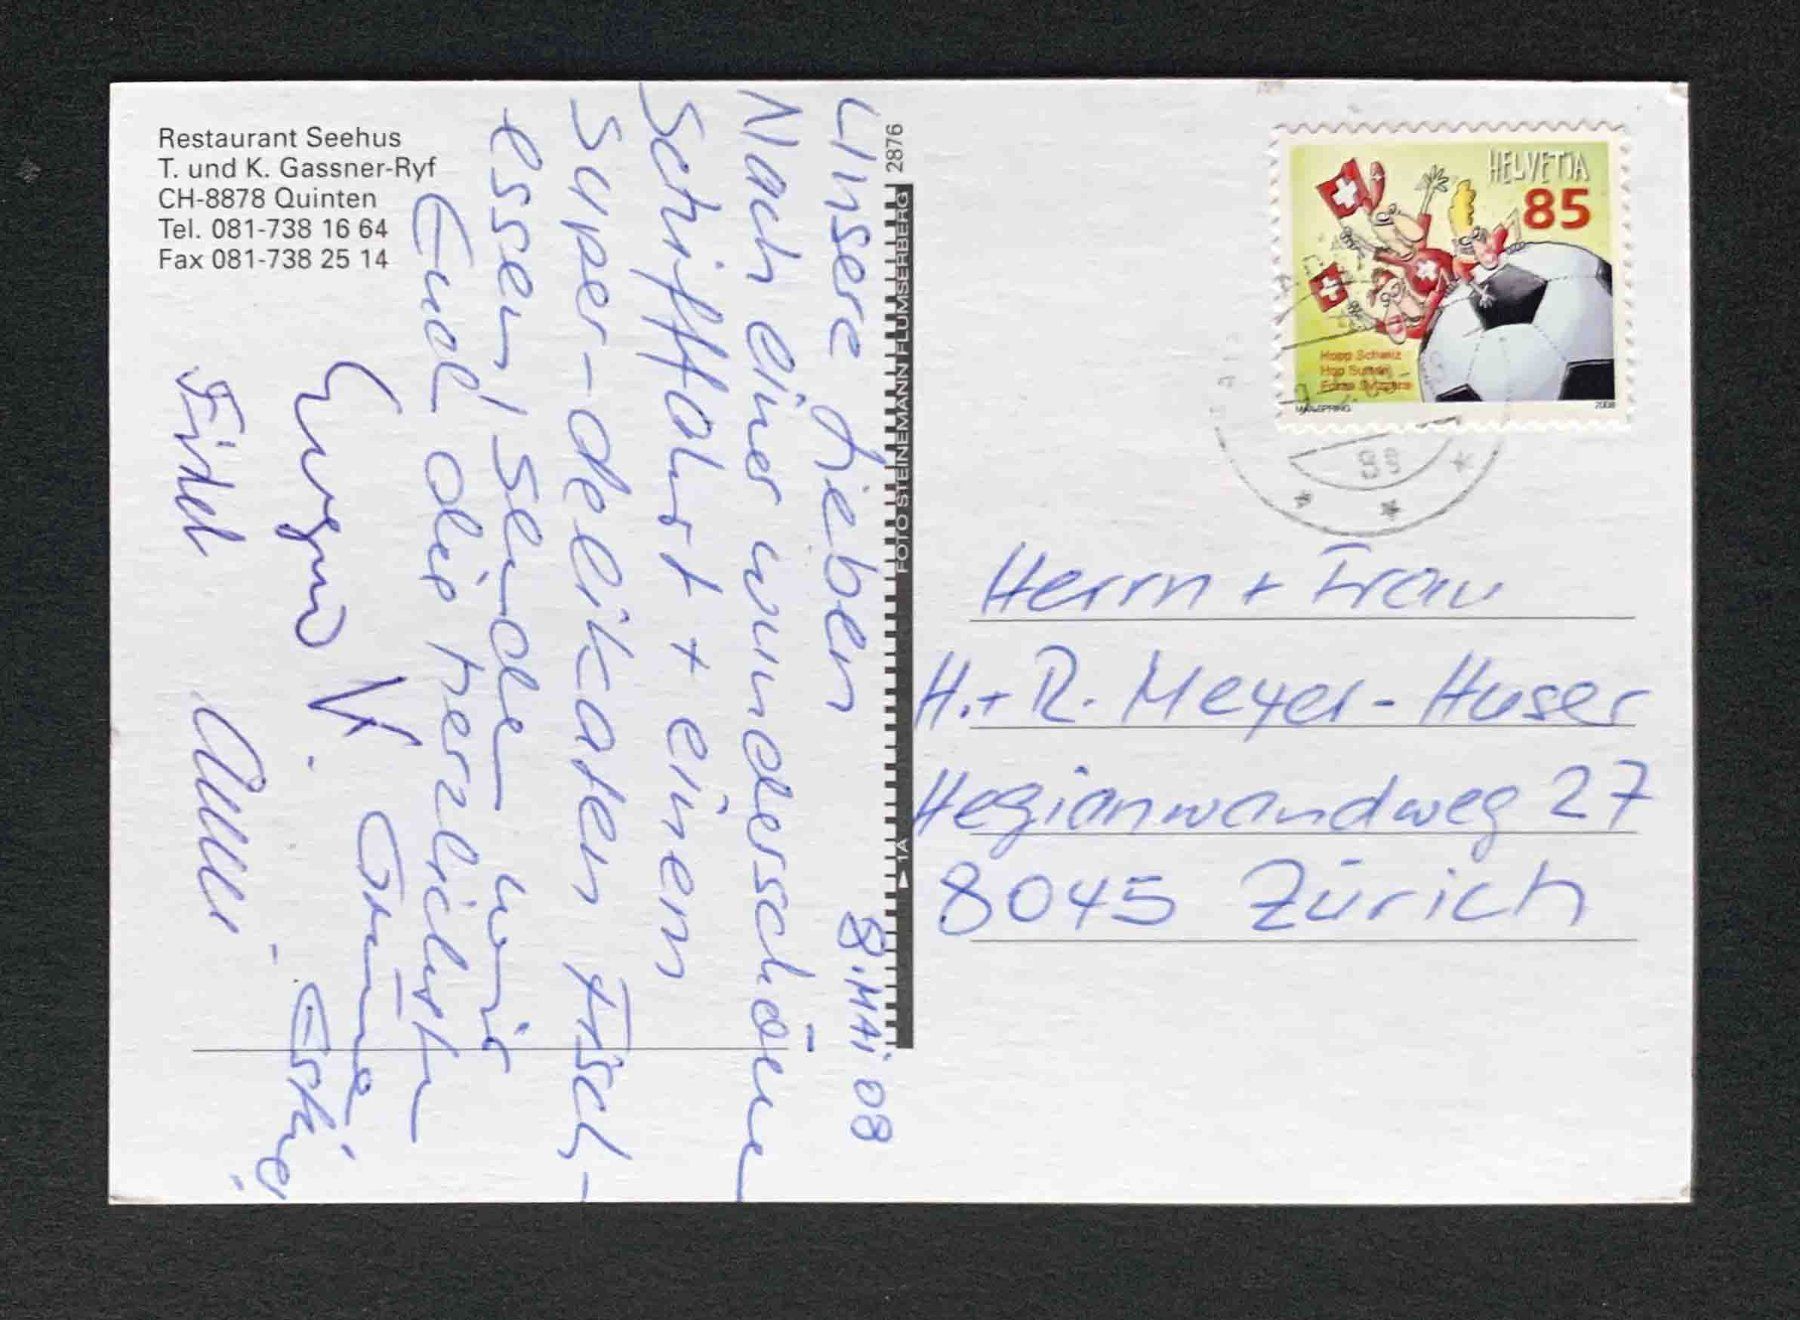 Restaurant Seehus
T. und K. Gassner-Ryf
CH-8878 Quinten
Tel. 081-738 16 64
Fax 081-738 25 14
8.MAi 08
Unsere Lieben
Nach einer wunderschönen
Schifffahrt + einem
super-delikaten Fisch-
essen, senden wir
Euch die herzlichsten
Grüsse
Fidel
2876
FOTO STEINEMANN FLUMSERBERG
1A
HELVETIA
85
Hopp Schwiz
Hop Suisse
Forza Svizzera
2008
08
Herrn + Frau
H.+ R. Meyer-Huser
Hegianwandweg 27
8045 Zürich